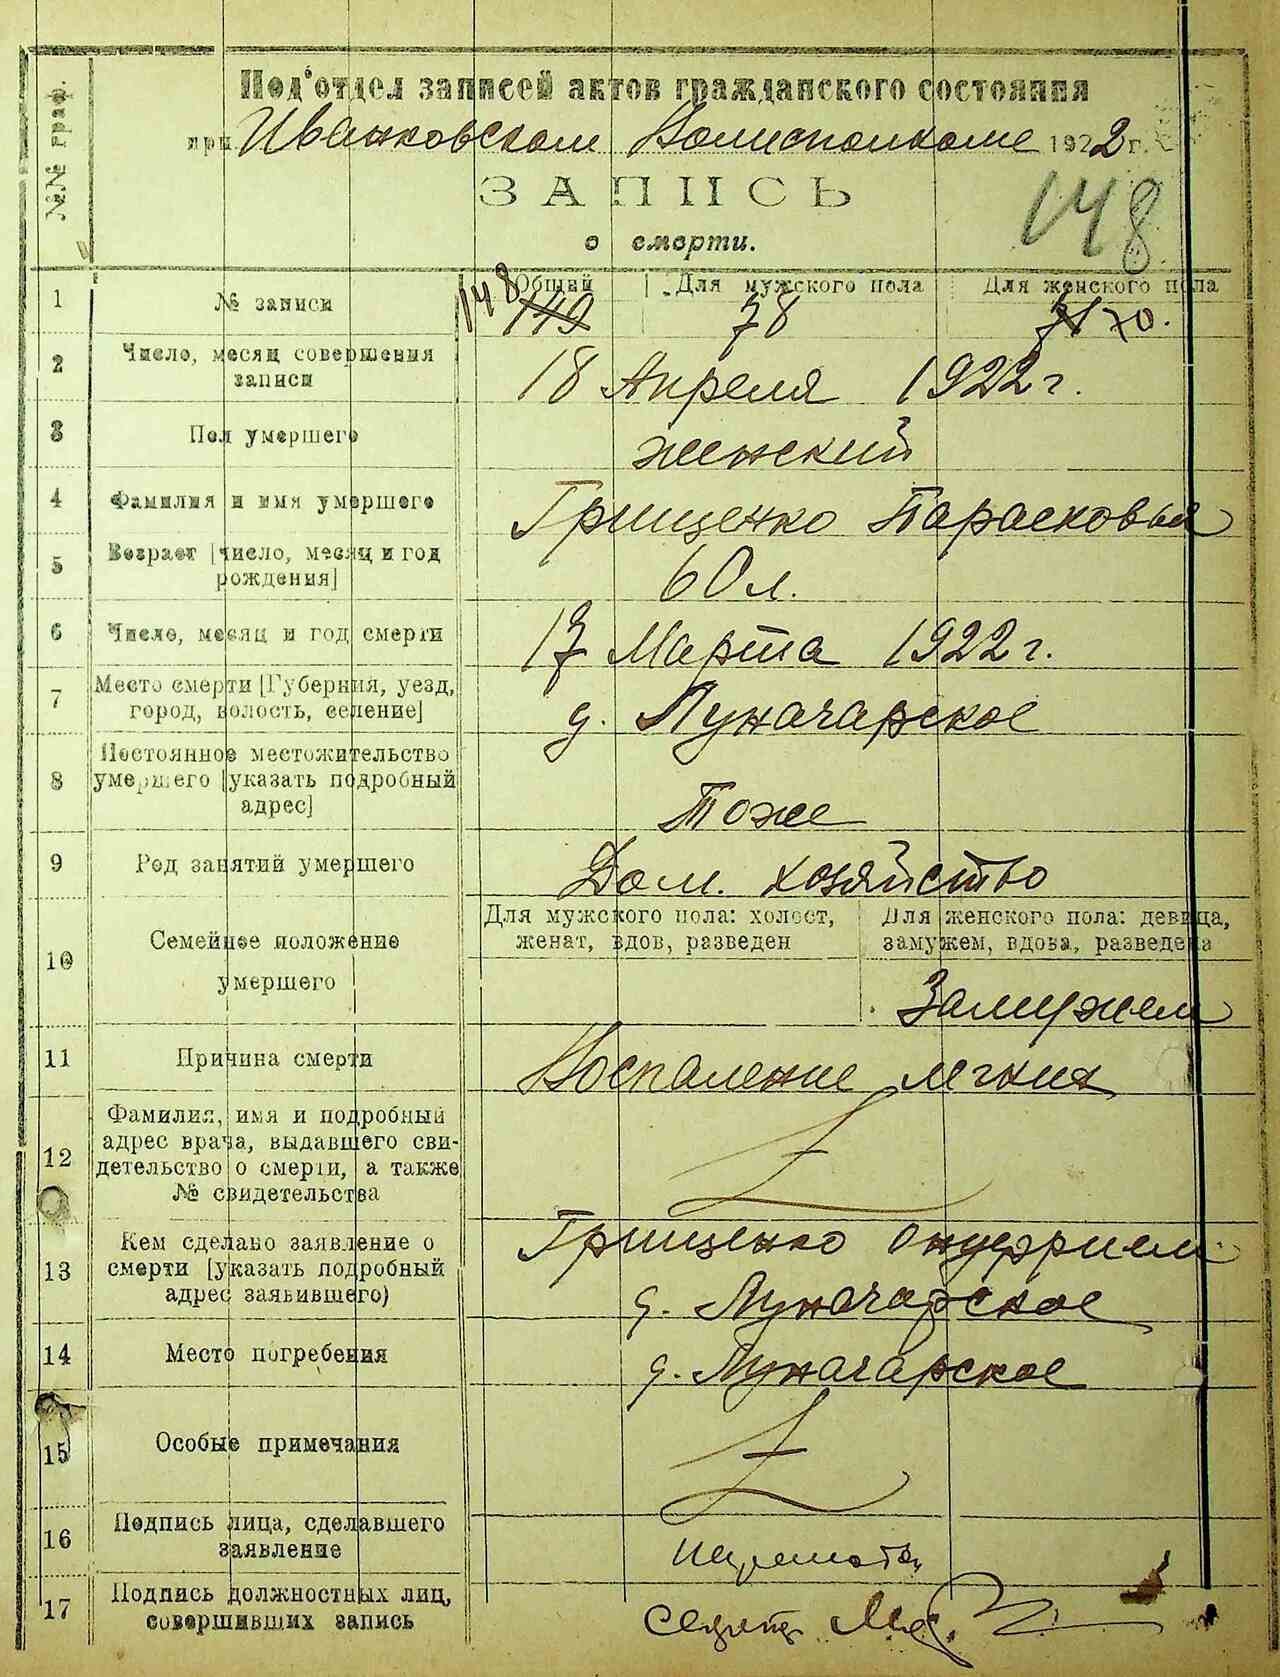 №№ граф.
Под'отдел записей актов гражданского состояния
при Иванковском Волисполкоме 1922 г.
ЗАПИСЬ
о смерти.
148
1 № записи
Общий Для мужского пола Для женского пола
148 149 78 71 70.
2 Число, месяц совершения записи
18 Апреля 1922 г.
3 Пол умершего
женский
4 Фамилия и имя умершего
Грищенко Парасковья
5 Возраст [число, месяц и год рождения]
60 л.
6 Число, месяц и год смерти
17 Марта 1922 г.
7 Место смерти [Губерния, уезд, город, волость, селение]
д. Луначарское
8 Постоянное местожительство умершего [указать подробный адрес]
Тоже
9 Род занятий умершего
Дом. хозяйство
10 Семейное положение умершего
Для мужского пола: холост, женат, вдов, разведен
Для женского пола: девица, замужем, вдова, разведена
Замужем
11 Причина смерти
Воспаление легких
12 Фамилия, имя и подробный адрес врача, выдавшего свидетельство о смерти, а также № свидетельства
13 Кем сделано заявление о смерти [указать подробный адрес заявившего)
Грищенко Онуфрием
д. Луначарское
14 Место погребения
д. Луначарское
15 Особые примечания
16 Подпись лица, сделавшего заявление
17 Подпись должностных лиц, совершивших запись